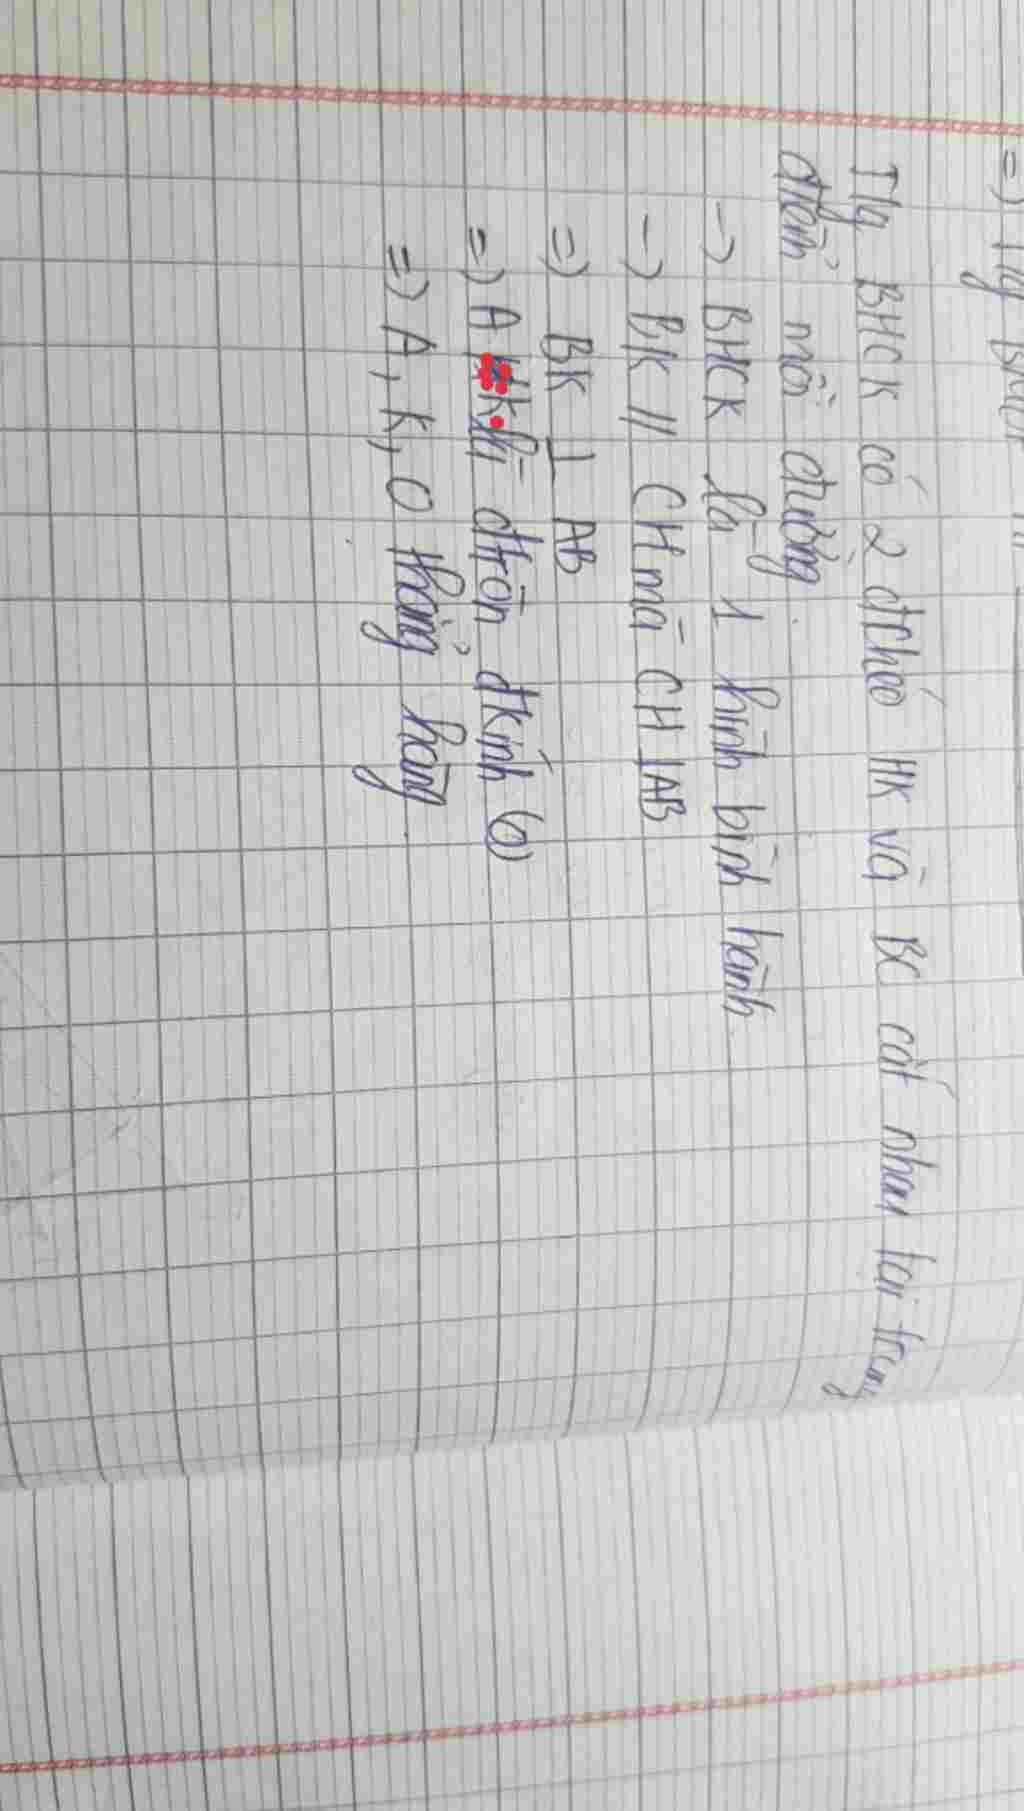 =) Tứg
Tứg BHCK có 2 đchéo HK và BC cắt nhau tại trung
điểm mỗi đường.
-> BHCK là 1 hình bình hành
-> BK // CH mà CH ⊥ AB
=) BK ⊥ AB
=) A K là đtròn đkính (O)
=) A, K, O thẳng hàng.